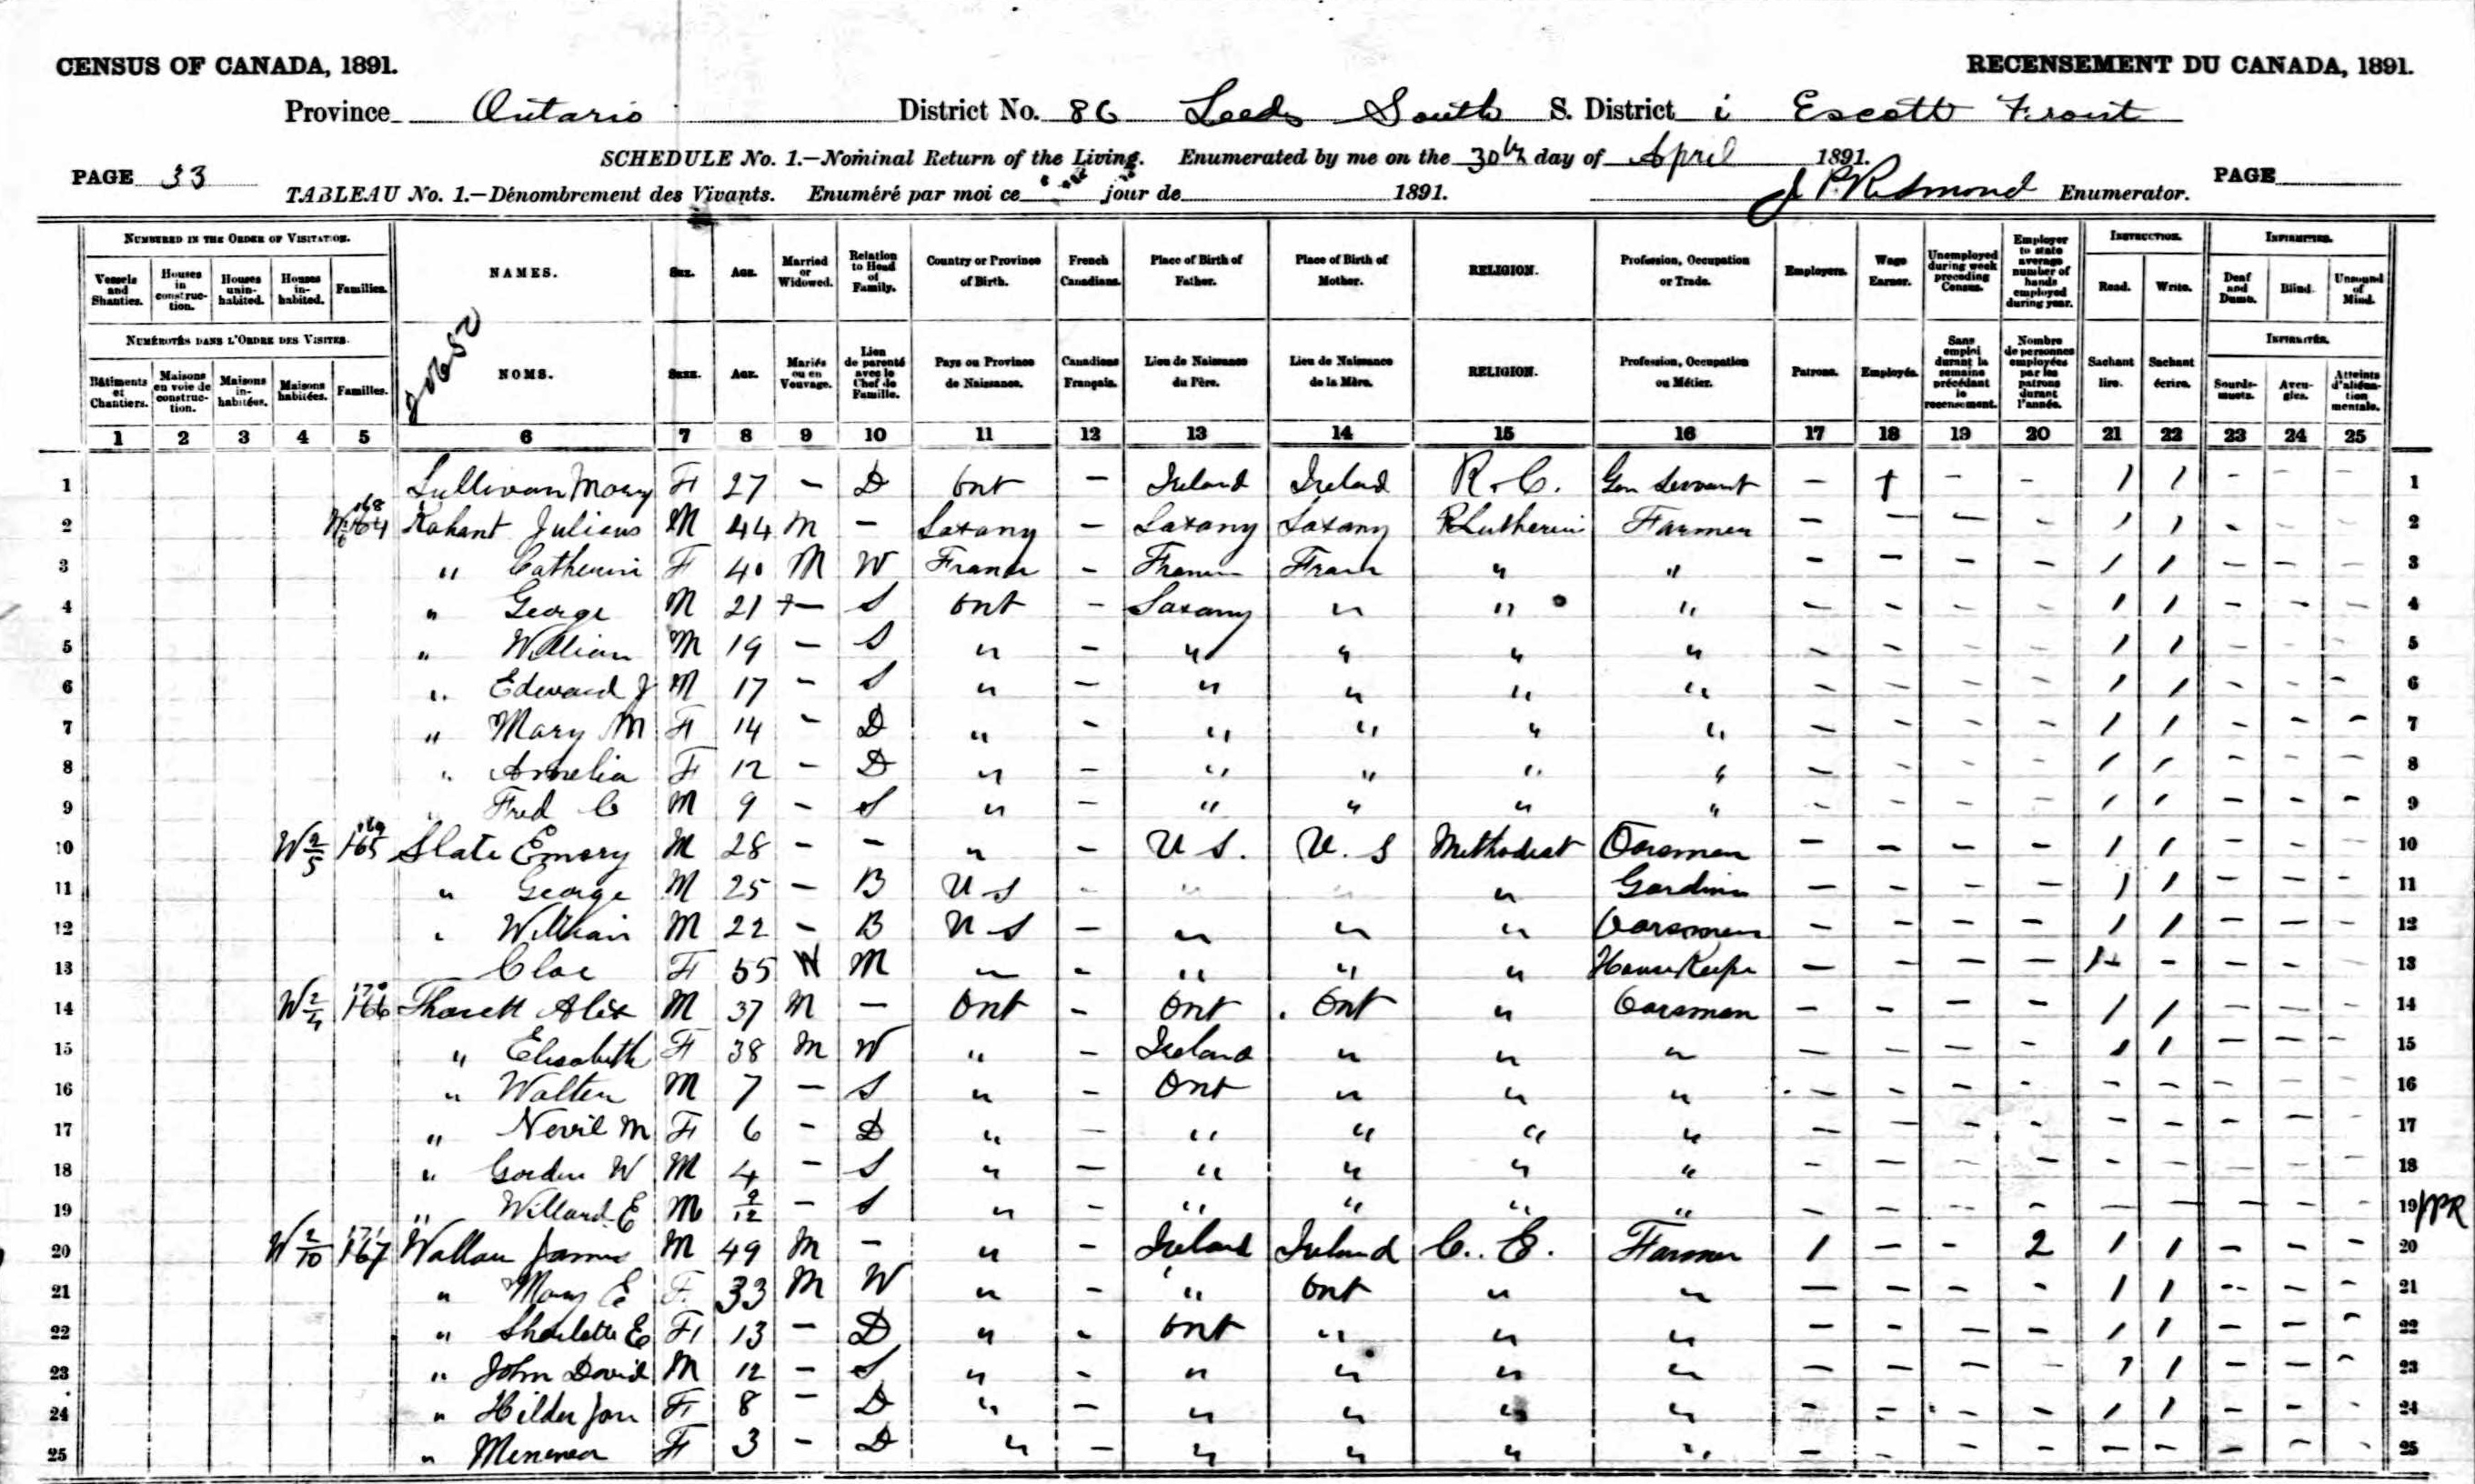 CENSUS OF CANADA, 1891. RECENSEMENT DU CANADA, 1891.
Province Ontario District No. 86 Leeds South S. District i Escott Front
SCHEDULE No. 1.—Nominal Return of the Living. Enumerated by me on the 30th day of April 1891.
PAGE 33 PAGE
TABLEAU No. 1.—Dénombrement des Vivants. Enuméré par moi ce jour de 1891. J P. Redmond Enumerator.
NUMBERED IN THE ORDER OF VISITATION. INSTRUCTION. INFIRMITIES.
Vessels and Shanties. Houses in construction. Houses uninhabited. Houses inhabited. Families. NAMES. SEX. AGE. Married or Widowed. Relation to Head of Family. Country or Province of Birth. French Canadians. Place of Birth of Father. Place of Birth of Mother. RELIGION. Profession, Occupation or Trade. Employers. Wage Earner. Unemployed during week preceding Census. Employer to state average number of hands employed during year. Read. Write. Deaf and Dumb. Blind. Unsound of Mind.
NUMÉROTÉS DANS L'ORDRE DES VISITES. INFIRMITÉS.
Bâtiments et Chantiers. Maisons en voie de construction. Maisons inhabitées. Maisons habitées. Familles. NOMS. SEXE. AGE. Mariés ou en Veuvage. Lien de parenté avec le Chef de Famille. Pays ou Province de Naissance. Canadiens Français. Lieu de Naissance du Père. Lieu de Naissance de la Mère. RELIGION. Profession, Occupation ou Métier. Patrons. Employés. Sans emploi durant la semaine précédant le recensement. Nombre de personnes employées par les patrons durant l'année. Sachant lire. Sachant écrire. Sourds-muets. Aveugles. Atteints d'aliénation mentale.
1 2 3 4 5 6 7 8 9 10 11 12 13 14 15 16 17 18 19 20 21 22 23 24 25
1 Sullivan Mary F 27 – D Ont – Ireland Ireland R. C. Gen Servant – + – – 1 1 – – – 1
2 168 164 Kahant Julious M 44 M – Saxony – Saxony Saxony Lutherin Farmer – – – – 1 1 – – – 2
3 " Catherin F 40 M W France – France France " " – – – – 1 1 – – – 3
4 " George M 21 – S Ont – Saxony " " " – – – – 1 1 – – – 4
5 " William M 19 – S " – " " " " – – – – 1 1 – – – 5
6 " Edward J M 17 – S " – " " " " – – – – 1 1 – – – 6
7 " Mary M F 14 – D " – " " " " – – – – 1 1 – – – 7
8 " Amelia F 12 – D " – " " " " – – – – 1 1 – – – 8
9 " Fred C M 9 – S " – " " " " – – – – 1 1 – – – 9
10 W 2/5 169 165 Slate Emory M 28 – – " U S. U. S Methodist Oarsman – – – – 1 1 – – – 10
11 " George M 25 – B U S – " " " Gardiner – – – – 1 1 – – – 11
12 " William M 22 – B U S – " " " Oarsman – – – – 1 1 – – – 12
13 Cloe F 55 W M " – " " " House Keeper – – – – 1 – – – – 13
14 W 2/4 170 166 Alex M 37 M – Ont – Ont Ont " Oarsman – – – – 1 1 – – – 14
15 " Elisabeth F 38 M W " – Ireland " " " – – – – 1 1 – – – 15
16 " Walter M 7 – S " – Ont " " " – – – – – – – – – 16
17 " M F 6 – D " – " " " " – – – – – – – – – 17
18 " Gorden W M 4 – S " – " " " " – – – – – – – – – 18
19 " Willard E M 9/12 – S " – " " " " – – – – – – – – – 19
20 W 2/10 171 167 James M 49 M – " – Ireland Ireland C. E. Farmer 1 – – 2 1 1 – – – 20
21 " Mary E F 33 M W " – " Ont " " – – – – 1 1 – – – 21
22 " Sharlotte E F 13 – D " – Ont " " " – – – – 1 1 – – – 22
23 " John David M 12 – S " – " " " " – – – – 1 1 – – – 23
24 " Hilder Jan F 8 – D " – " " " " – – – – 1 1 – – – 24
25 " Menerva F 3 – D " – " " " " – – – – – – – – – 25